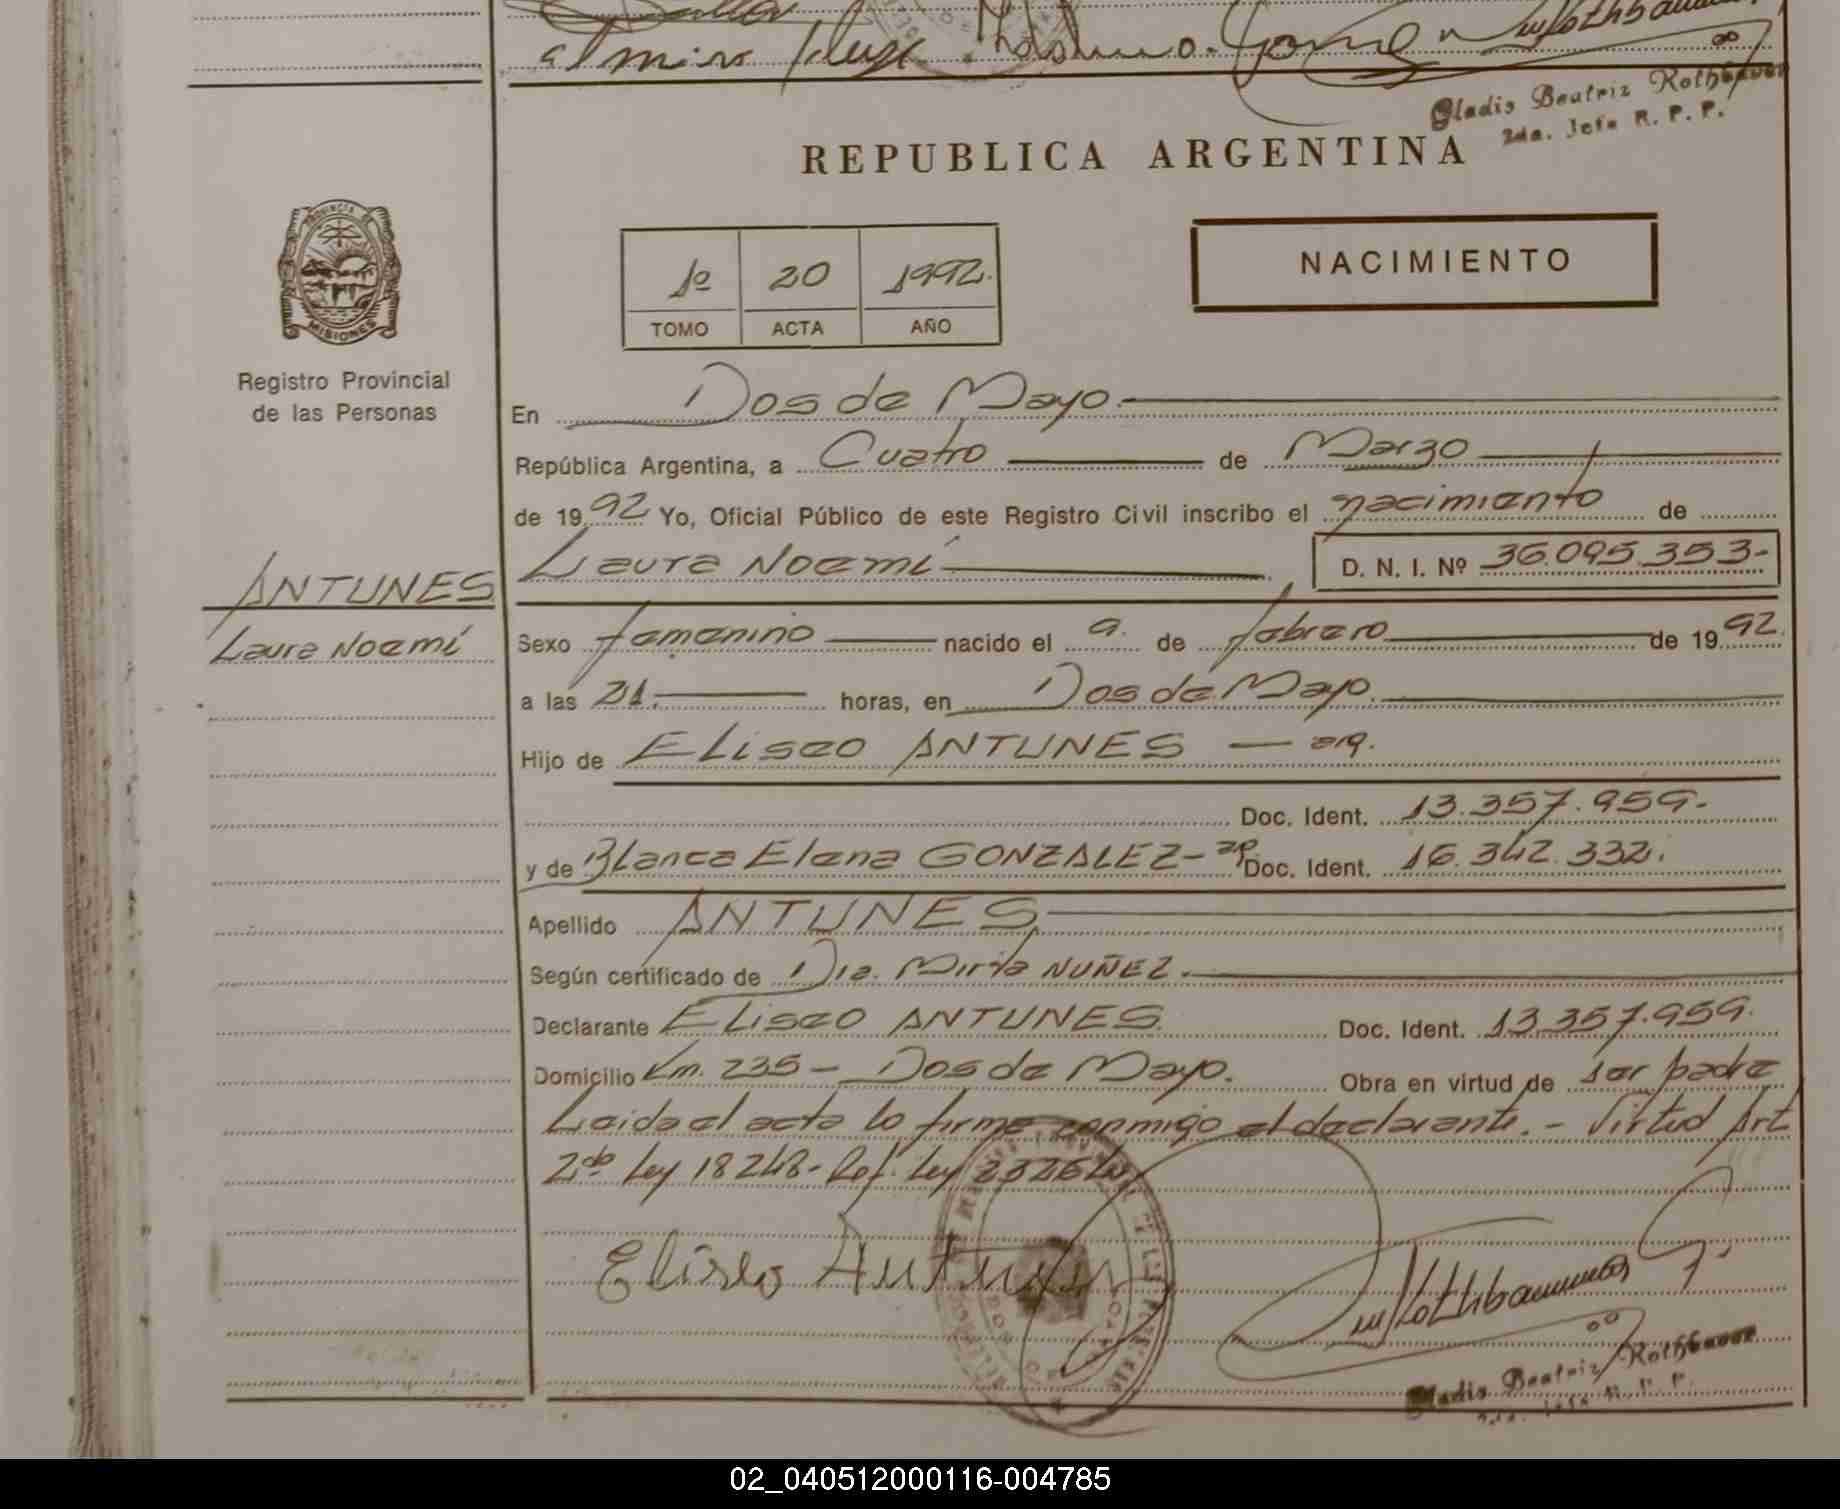 Gladis Beatriz Rothbauer
2da. Jefa R. P. P.
REPUBLICA ARGENTINA
PROVINCIA DE
MISIONES
1º 20 1992.
TOMO ACTA AÑO
NACIMIENTO
Registro Provincial
de las Personas
En Dos de Mayo.
República Argentina, a Cuatro de Marzo
de 1992 Yo, Oficial Público de este Registro Civil inscribo el nacimiento de
Laura Noemí D. N. I. Nº 36.095.353-
ANTUNES
Laura Noemí
Sexo femenino nacido el 9. de febrero de 1992.
a las 21. horas, en Dos de Mayo.
Hijo de Eliseo ANTUNES — arg.
Doc. Ident. 13.357.959.-
y de Blanca Elena GONZALEZ- Doc. Ident. 16.342.332.
Apellido ANTUNES
Según certificado de Dra. Mirta NUÑEZ.
Declarante Eliseo ANTUNES. Doc. Ident. 13.357.959.
Domicilio Km. 235 - Dos de Mayo. Obra en virtud de ser padre
Leida el acta la firma conmigo el declarante. - Virtud Art
2do Ley 18248- Ref. Ley 23264
Eliseo Antunes
Gladis Beatriz Rothbauer
2da. Jefa R. P. P.
02_040512000116-004785